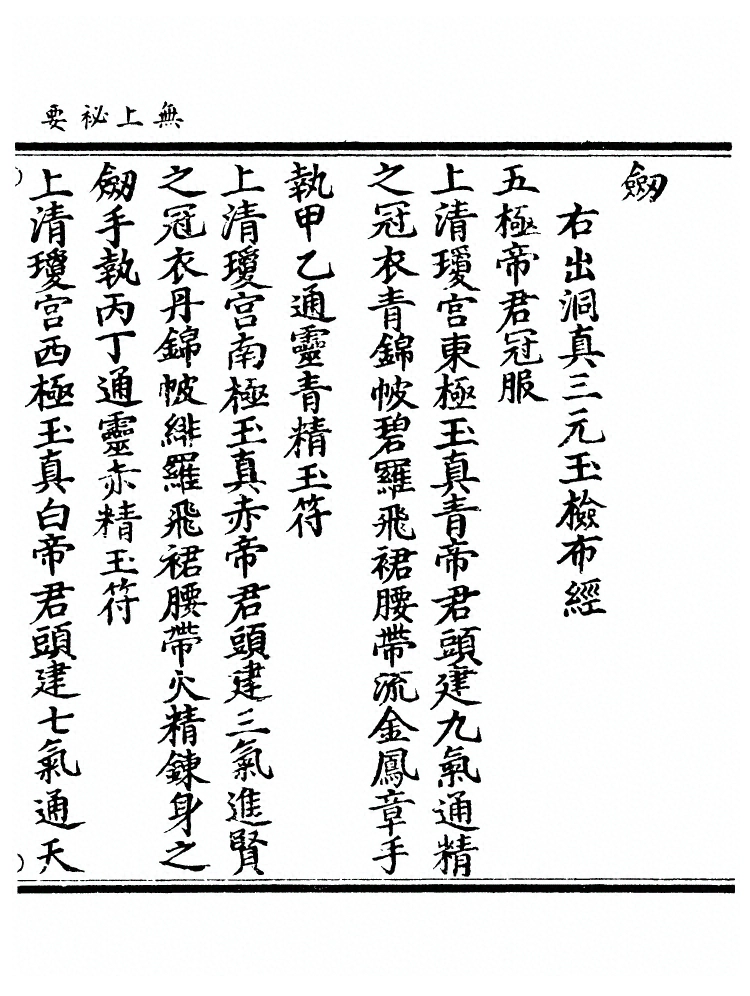 無上祕要
劒
右出洞真三元玉檢布經
五極帝君冠服
上清瓊宮東極玉真青帝君頭建九氣通精
之冠衣青錦帔碧羅飛裙腰帶流金鳳章手
執甲乙通靈青精玉符
上清瓊宮南極玉真赤帝君頭建三氣進賢
之冠衣丹錦帔緋羅飛裙腰帶火精鍊身之
劒手執丙丁通靈赤精玉符
上清瓊宮西極玉真白帝君頭建七氣通天